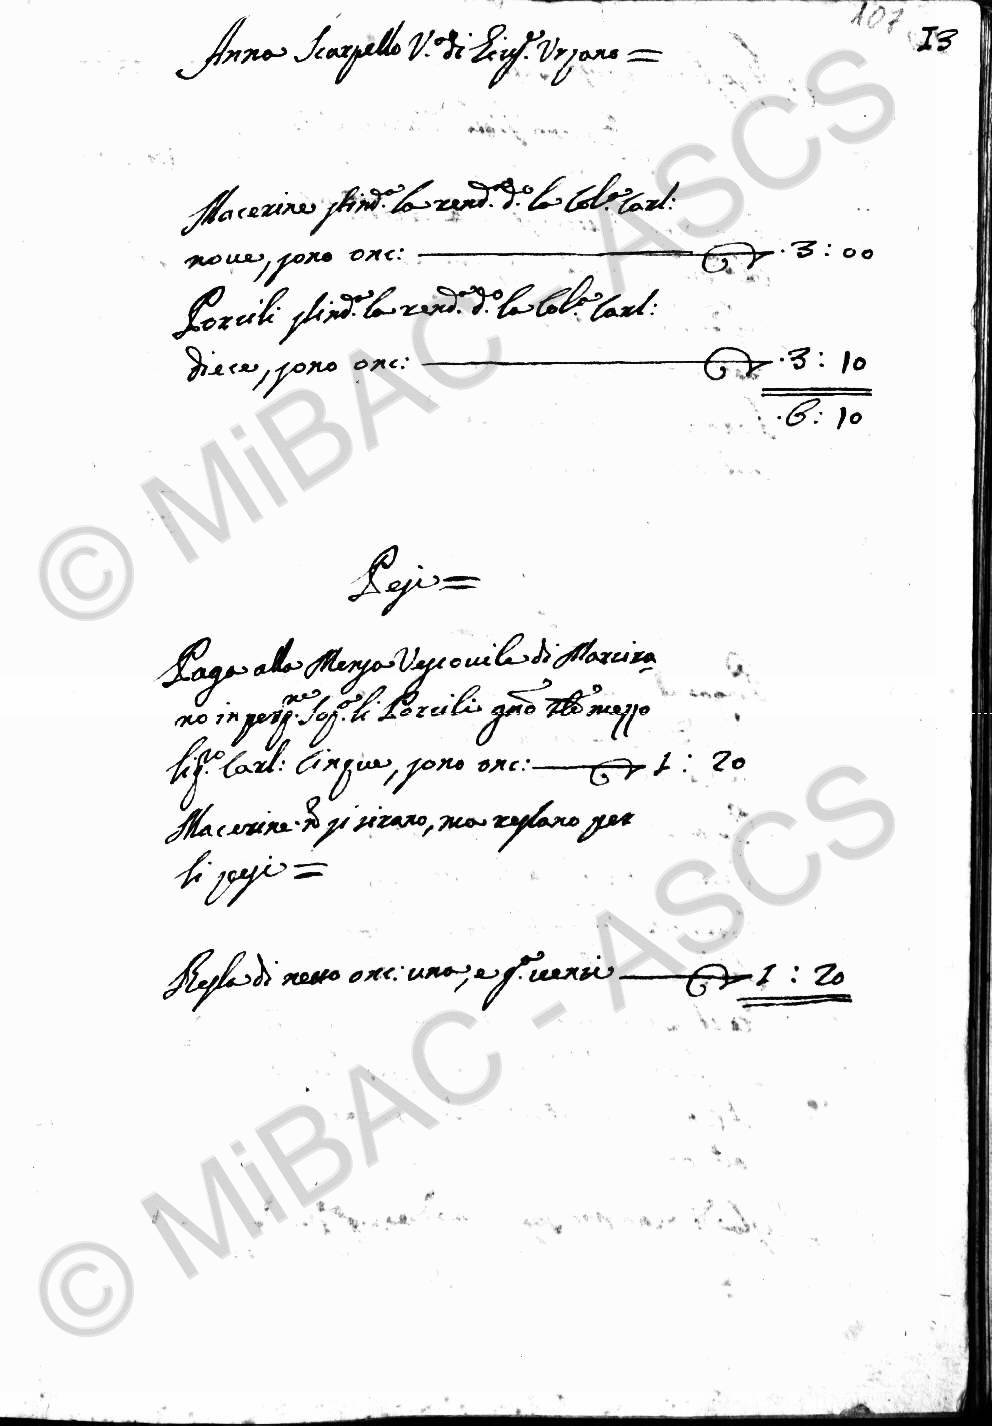 107 13
Anna Scarpello V.a di Gius.e Ursano =
Macerine stim.o la rend.a d.o la Col.a Carl:
noue, sono onc: ——— . 3 : 00
Porcili stim.o la rend.a d.o la Col.a Carl:
diece, sono onc: ——— . 3 : 10
. 6 : 10
Pesi =
Paga alla Mensa Vescouile di Marcira
no in perp. sop.a li Porcili mezzo
Carl: Cinque, sono onc: — 1 : 20
Macerine n si tirano, ma restano per
li pesi =
Resta di netto onc: una, e g.a uenti — 1 : 20
© MiBAC - ASCS
© MiBAC - ASCS